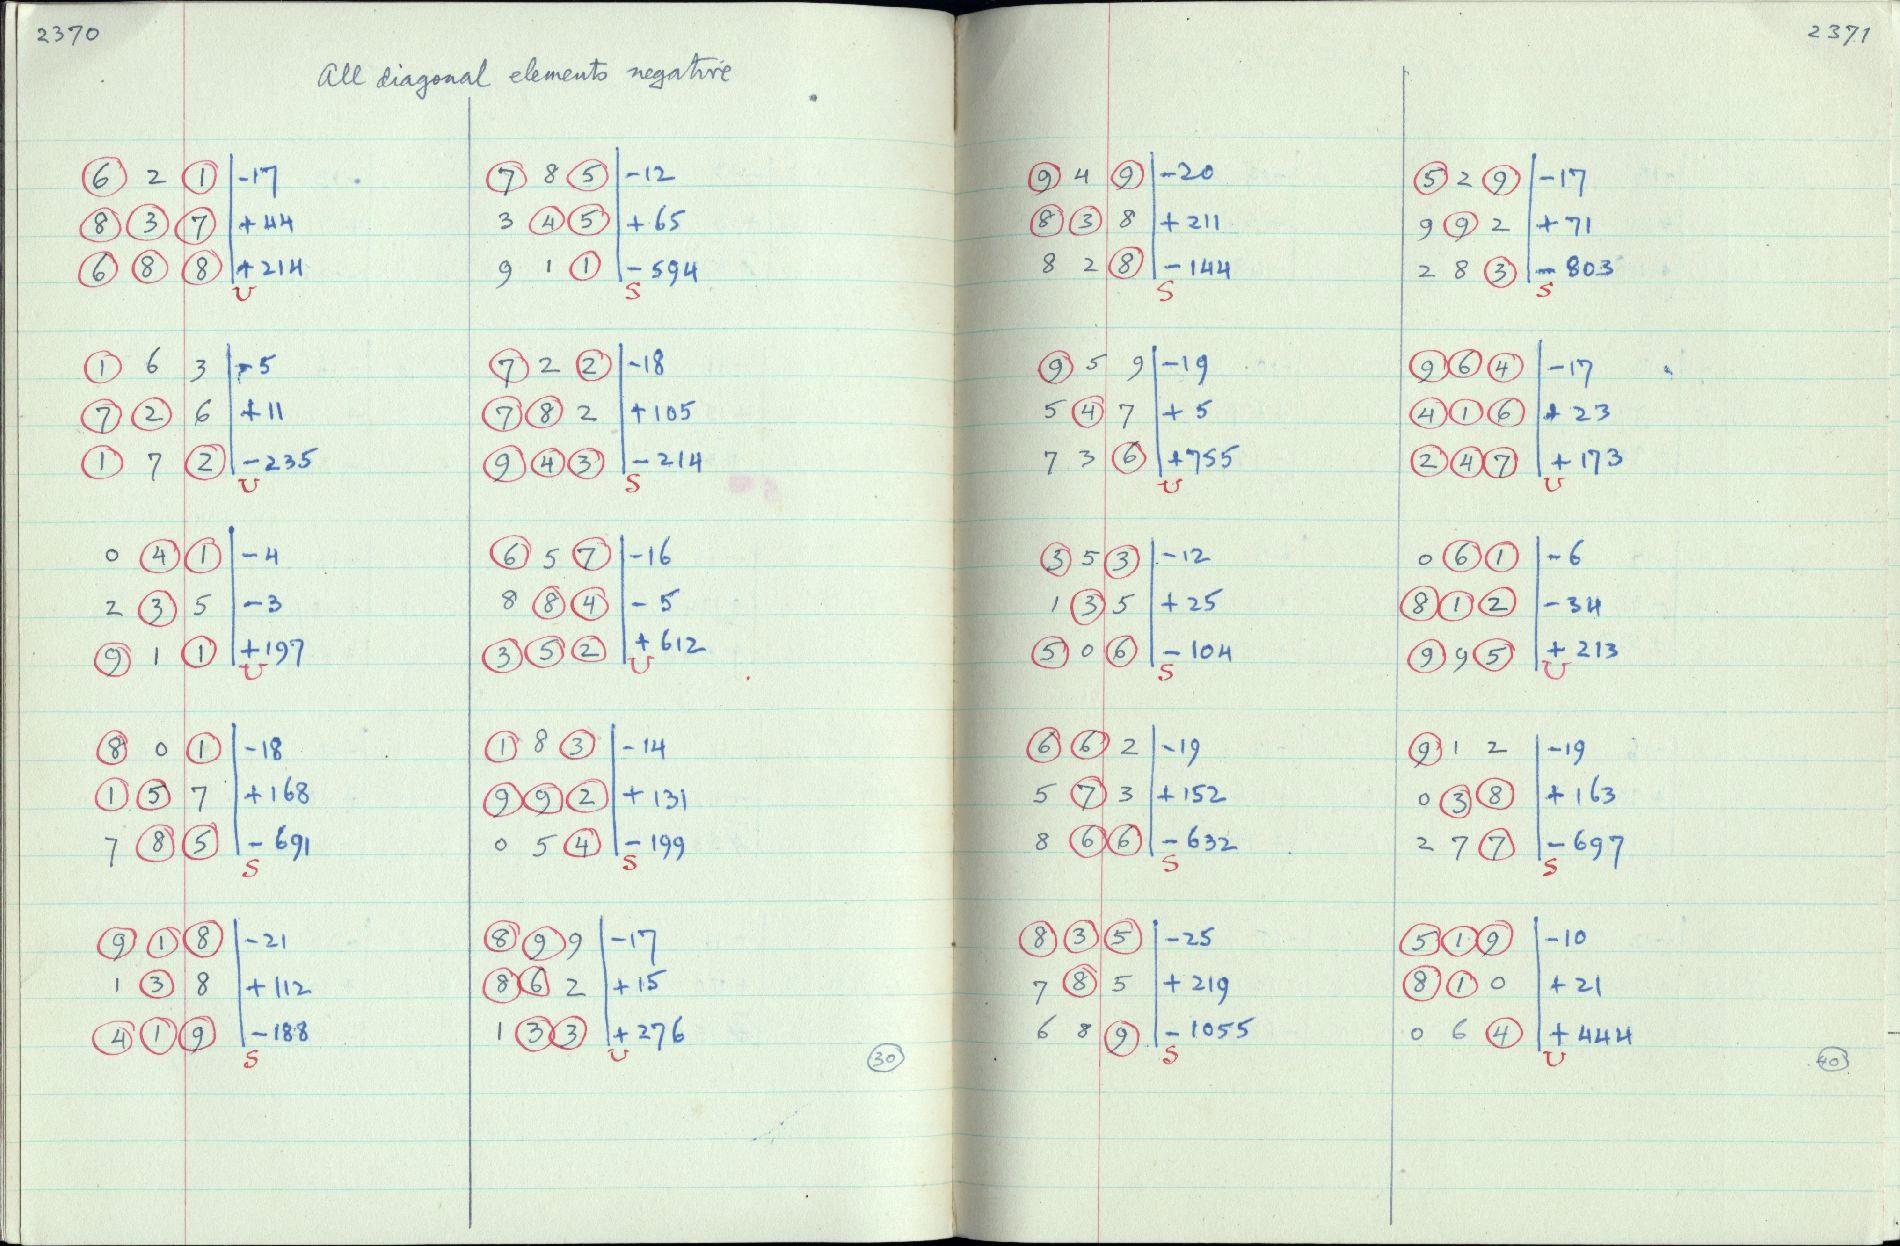 2370
All diagonal elements negative
6 2 1 -17
8 3 7 +44
6 8 8 +214
U
1 6 3 -5
7 2 6 +11
1 7 2 -235
U
0 4 1 -4
2 3 5 -3
9 1 1 +197
U
8 0 1 -18
1 5 7 +168
7 8 5 -691
S
9 1 8 -21
1 3 8 +112
4 1 9 -188
S
7 8 5 -12
3 4 5 +65
9 1 1 -594
S
7 2 2 -18
7 8 2 +105
9 4 3 -214
S
6 5 7 -16
8 8 4 -5
3 5 2 +612
U
1 8 3 -14
9 9 2 +131
0 5 4 -199
S
8 9 9 -17
8 6 2 +15
1 3 3 +276
U
30
2371
9 4 9 -20
8 3 8 +211
8 2 8 -144
S
9 5 9 -19
5 4 7 +5
7 3 6 +755
U
3 5 3 -12
1 3 5 +25
5 0 6 -104
S
6 6 2 -19
5 7 3 +152
8 6 6 -632
S
8 3 5 -25
7 8 5 +219
6 8 9 -1055
S
5 2 9 -17
9 9 2 +71
2 8 3 -803
S
9 6 4 -17
4 1 6 +23
2 4 7 +173
U
0 6 1 -6
8 1 2 -34
9 9 5 +213
U
9 1 2 -19
0 3 8 +163
2 7 7 -697
S
5 1 9 -10
8 1 0 +21
0 6 4 +444
U
40